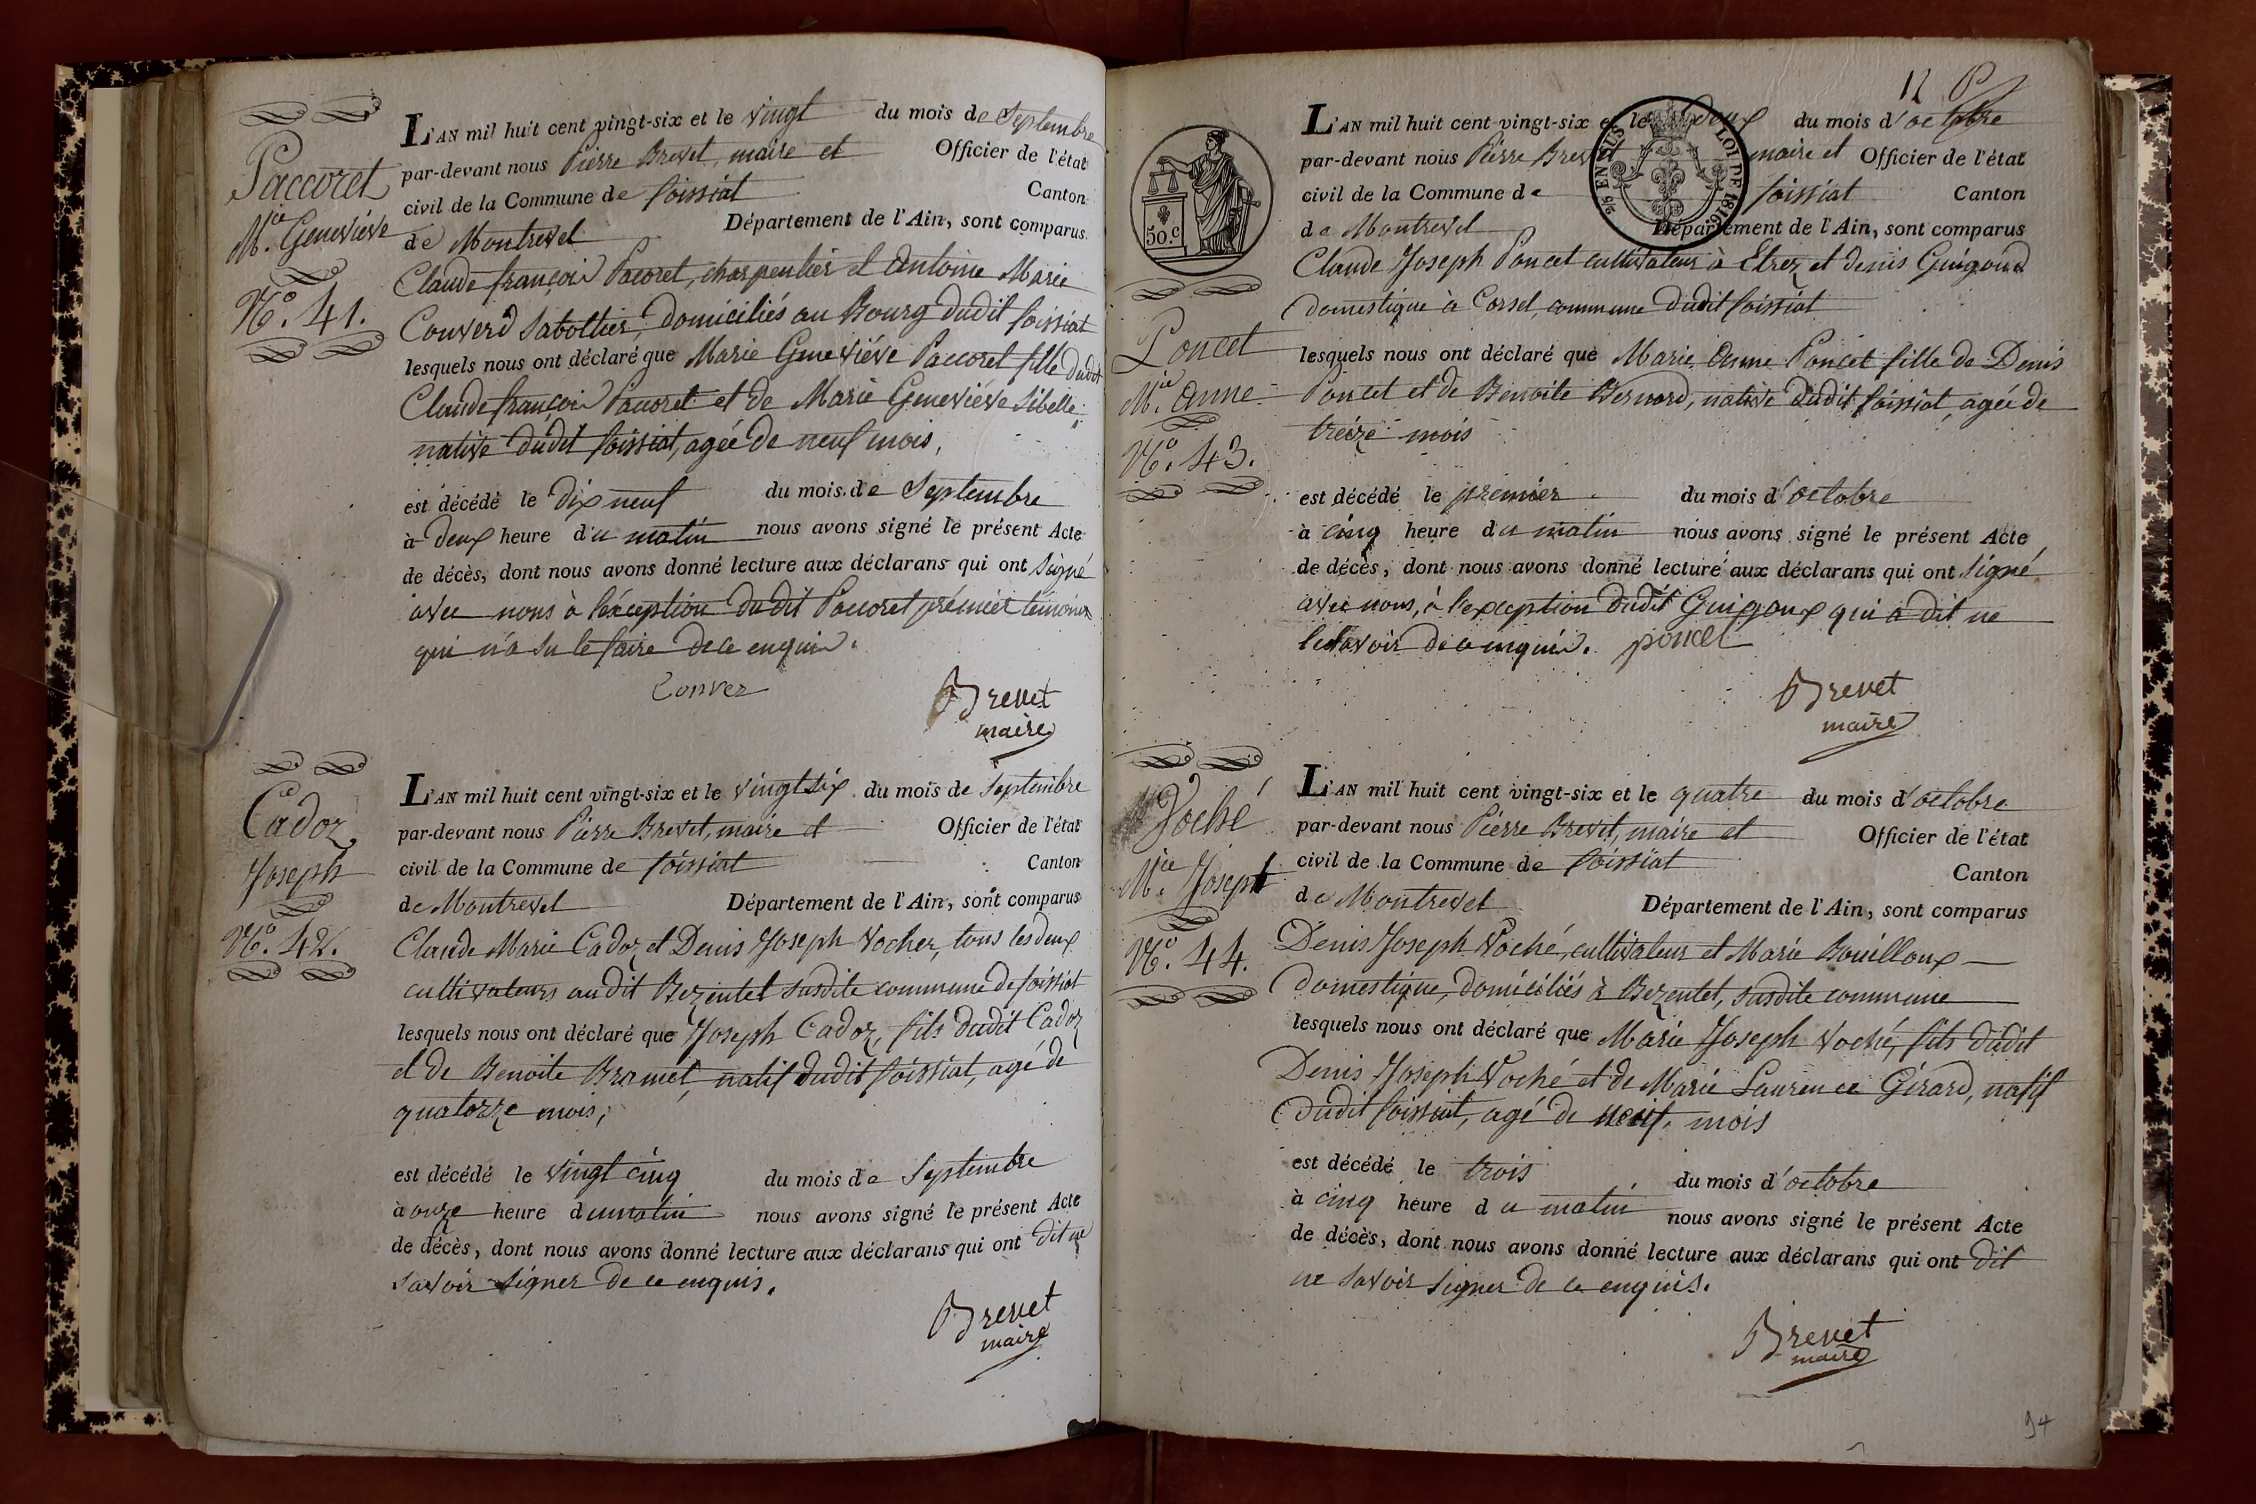 Paccoret
Mie. Geneviève
N°. 41.
L'AN mil huit cent vingt-six et le vingt du mois de Septembre
par-devant nous Pierre Brevet, maire et Officier de l'état
civil de la Commune de foissiat Canton
de Montrevel Département de l'Ain, sont comparus
Claude françois Pacoret, charpentier et Antoine Marie
Converd Sabottier, domiciliés au Bourg dudit foissiat
lesquels nous ont déclaré que Marie Geneviève Paccoret fille dudit
Claude françois Pacoret et de Marie Geneviève Sibelle
native dudit foissiat, agée de neuf mois,
est décédé le dix neuf du mois de Septembre
à deux heure du matin nous avons signé le présent Acte
de décès, dont nous avons donné lecture aux déclarans qui ont signé
avec nous à l'éxception dudit Paccoret prémier témoin
qui n'a su le faire de ce enquis.
Conver
Brevet
maire
Cadoz
Joseph
N°. 42.
L'AN mil huit cent vingt-six et le vingt six du mois de Septembre
par-devant nous Pierre Brevet, maire et Officier de l'état
civil de la Commune de foissiat Canton
de Montrevel Département de l'Ain, sont comparus
Claude Marie Cadoz et Denis Joseph Vocher, tous les deux
cultivateurs audit Bezentet susdite commune de foissiat
lesquels nous ont déclaré que Joseph Cadoz, fils dudit Cadoz
et de Benoite Bramet, natif dudit foissiat, agé de
quatorze mois,
est décédé le vingt cinq du mois de Septembre
à onze heure du matin nous avons signé le présent Acte
de décès, dont nous avons donné lecture aux déclarans qui ont dit ne
savoir signer de ce enquis.
Brevet
maire
12
50.c
EN SUS
LOI DE 1816
Poncet
Mie. Anne
N°. 43.
L'AN mil huit cent vingt-six et le deux du mois d'octobre
par-devant nous Pierre Brevet maire et Officier de l'état
civil de la Commune de foissiat Canton
de Montrevel Département de l'Ain, sont comparus
Claude Joseph Poncet cultivateur à Etrez et denis Guigoud
domestique à Corsel, commune dudit foissiat
lesquels nous ont déclaré que Marie Anne Poncet fille de Denis
Poncet et de Benoite Bernard, native dudit foissiat, agée de
treize mois
est décédé le premier du mois d'octobre
à cinq heure du matin nous avons signé le présent Acte
de décès, dont nous avons donné lecture aux déclarans qui ont signé
avec nous, à l'exception dudit Guigoux qui a dit ne
le savoir de ce enquis. poncet
Brevet
maire
Voché
Mie Joseph
N°. 44.
L'AN mil huit cent vingt-six et le quatre du mois d'octobre
par-devant nous Pierre Brevet, maire et Officier de l'état
civil de la Commune de foissiat Canton
de Montrevel Département de l'Ain, sont comparus
Denis Joseph Voché, cultivateur et Marie Bouilloux
domestique, domiciliés à Bezentet, susdite commune
lesquels nous ont déclaré que Marie Joseph Voché, fils dudit
Denis Joseph Voché et de Marie Laurence Girard, natif
dudit foissiat, agé de neuf mois
est décédé le trois du mois d'octobre
à cinq heure du matin nous avons signé le présent Acte
de décès, dont nous avons donné lecture aux déclarans qui ont dit
ne savoir signer de ce enquis.
Brevet
maire
94